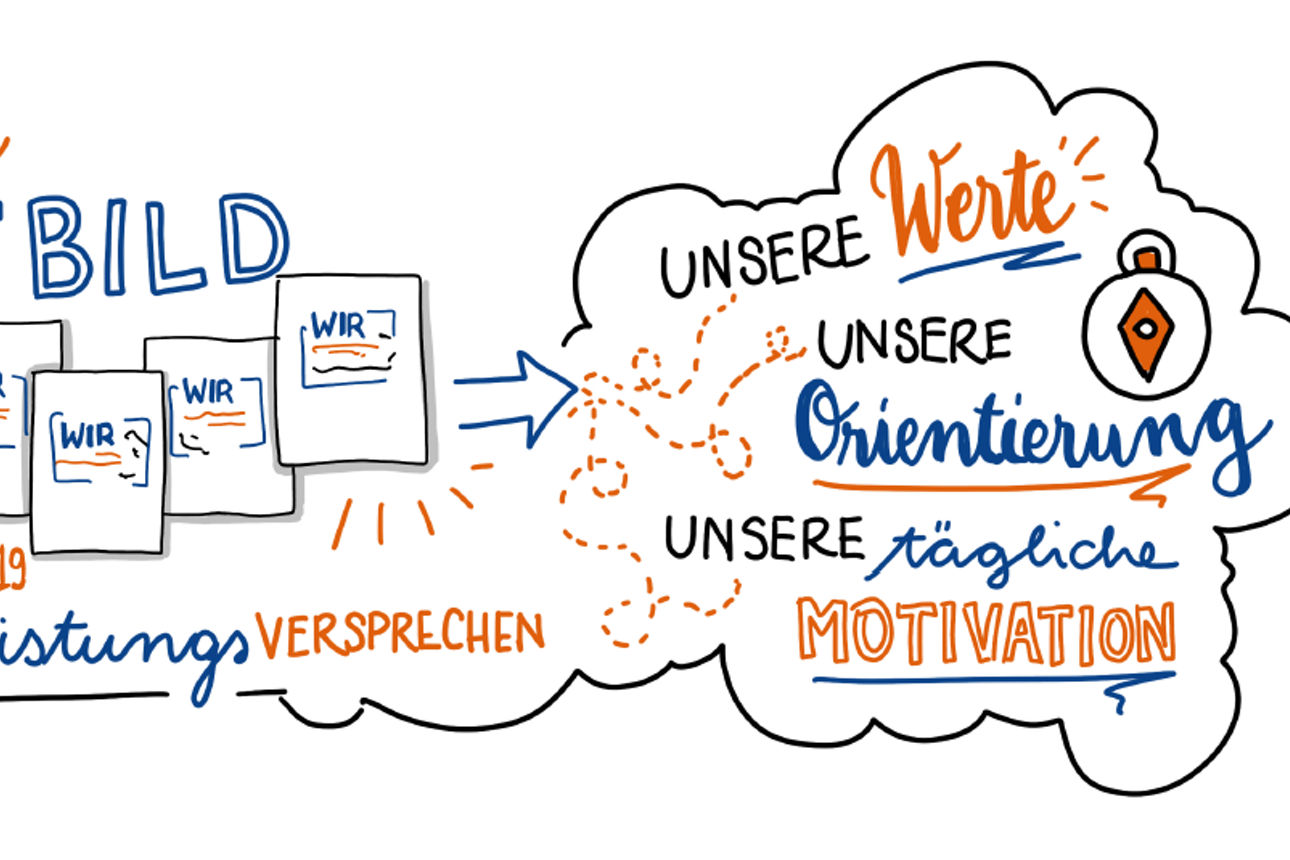 BILD
WIR
WIR
WIR
19
istungsVERSPRECHEN
UNSERE Werte
UNSERE
Orientierung
UNSERE tägliche
MOTIVATION